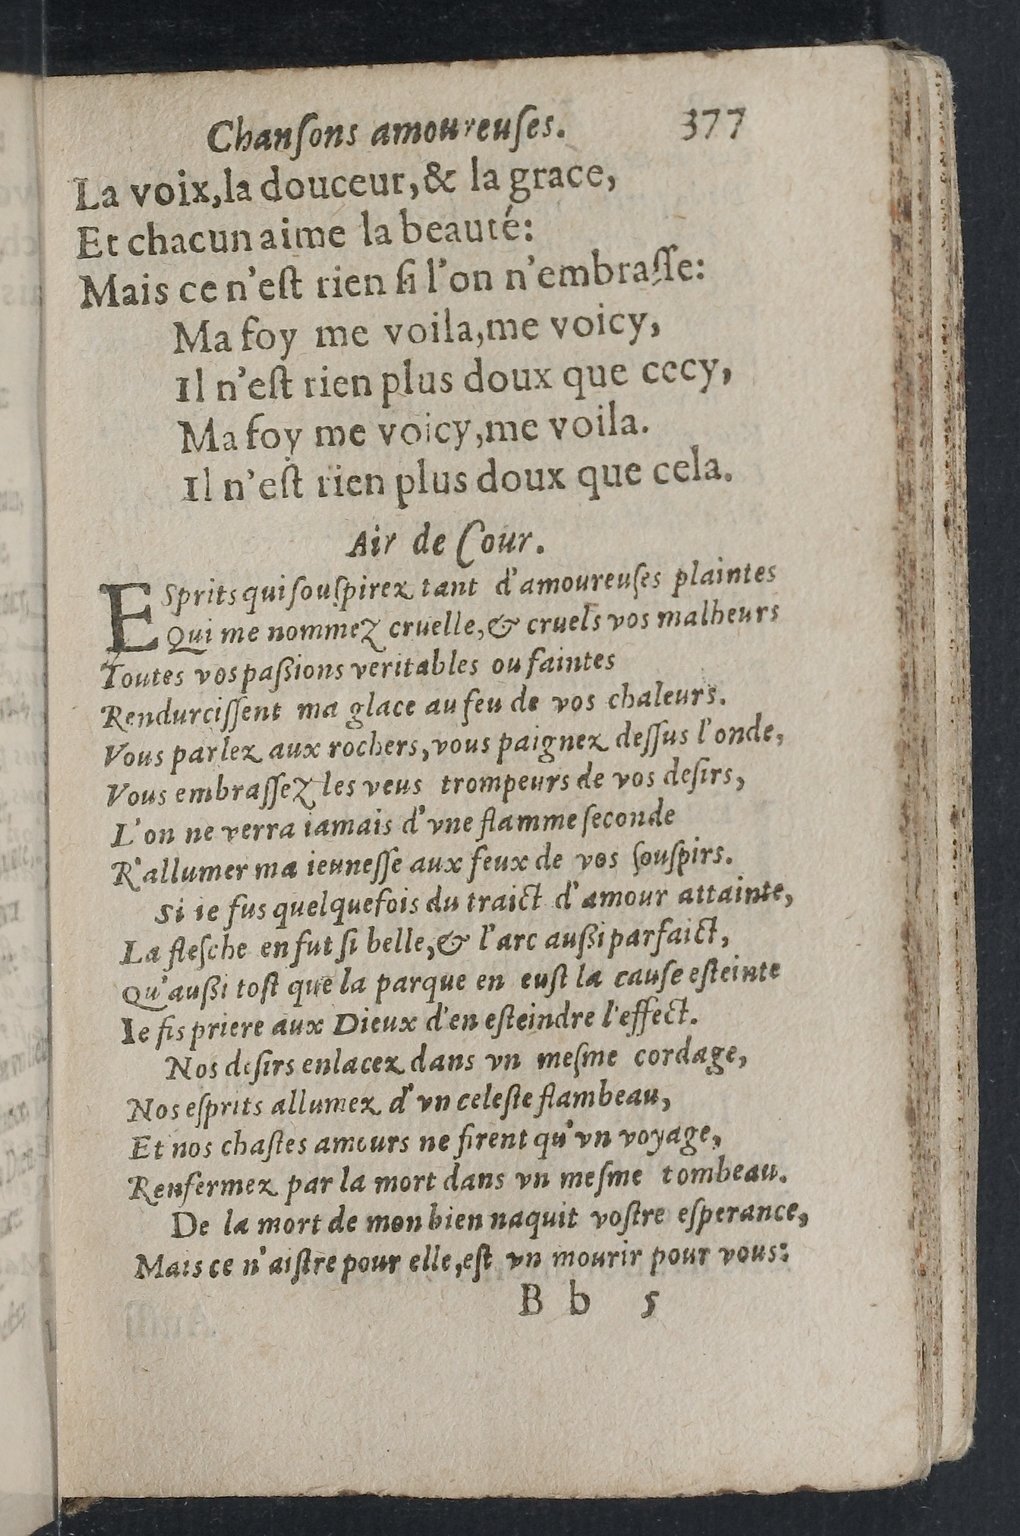 Chanſons amoureuſes. 377
La voix, la douceur, & la grace,
Et chacun aime la beauté:
Mais ce n'eſt rien ſi l'on n'embraſſe:
Ma foy me voila, me voicy,
Il n'eſt rien plus doux que cecy,
Ma foy me voicy, me voila.
Il n'eſt rien plus doux que cela.
Air de Cour.
ESprits qui ſouſpirez tant d'amoureuſes plaintes
Qui me nommez cruelle, & cruels vos malheurs
Toutes vos paßions veritables ou faintes
Rendurciſſent ma glace au feu de vos chaleurs.
Vous parlez aux rochers, vous paignez deſſus l'onde,
Vous embraſſez les veus trompeurs de vos deſirs,
L'on ne verra iamais d'vne flamme ſeconde
R'allumer ma ieuneſſe aux feux de vos ſouſpirs.
Si ie fus quelquefois du traict d'amour attainte,
La fleſche en fut ſi belle, & l'arc außi parfaict,
Qu'außi toſt que la parque en euſt la cauſe eſteinte
Ie fis priere aux Dieux d'en eſteindre l'effect.
Nos deſirs enlacez dans vn meſme cordage,
Nos eſprits allumez d'vn celeſte flambeau,
Et nos chaſtes amours ne firent qu'vn voyage,
Renfermez par la mort dans vn meſme tombeau.
De la mort de mon bien naquit voſtre eſperance,
Mais ce n'aiſtre pour elle, eſt vn mourir pour vous:
B b 5